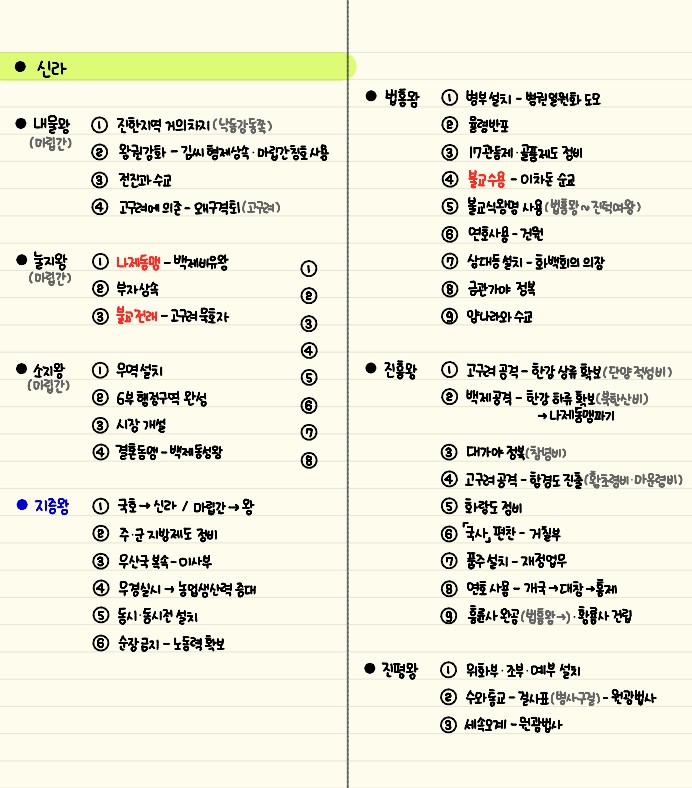 ● 신라
● 내물왕 ① 진한지역 거의차지 (낙동강동쪽)
(마립간) ② 왕권강화 - 김씨 형제상속·마립간칭호 사용
③ 전진과 수교
④ 고구려에 의존 - 왜구격퇴 (고구려)
● 눌지왕 ① 나제동맹 - 백제비유왕
(마립간) ② 부자상속
③ 불교전래 - 고구려 묵호자
①
②
③
④
⑤
⑥
⑦
⑧
● 소지왕 ① 우역 설치
(마립간) ② 6부 행정구역 완성
③ 시장 개설
④ 결혼동맹 - 백제 동성왕
● 지증왕 ① 국호 → 신라 / 마립간 → 왕
② 주·군 지방제도 정비
③ 우산국 복속 - 이사부
④ 우경실시 → 농업생산력 증대
⑤ 동시·동시전 설치
⑥ 순장 금지 - 노동력 확보
● 법흥왕 ① 병부 설치 - 병권일원화 도모
② 율령반포
③ 17관등제·골품제도 정비
④ 불교수용 - 이차돈 순교
⑤ 불교식왕명 사용 (법흥왕 ~ 진덕여왕)
⑥ 연호사용 - 건원
⑦ 상대등 설치 - 화백회의 의장
⑧ 금관가야 정복
⑨ 양나라와 수교
● 진흥왕 ① 고구려 공격 - 한강 상류 확보 (단양 적성비)
② 백제 공격 - 한강 하류 확보 (북한산비)
→ 나제동맹파기
③ 대가야 정복 (창녕비)
④ 고구려 공격 - 함경도 진출 (황초령비·마운령비)
⑤ 화랑도 정비
⑥ 「국사」 편찬 - 거칠부
⑦ 품주 설치 - 재정업무
⑧ 연호 사용 - 개국 → 대창 → 홍제
⑨ 흥륜사 완공 (법흥왕→)·황룡사 건립
● 진평왕 ① 위화부·조부·예부 설치
② 수와통교 - 걸사표 (병사구걸) - 원광법사
③ 세속오계 - 원광법사